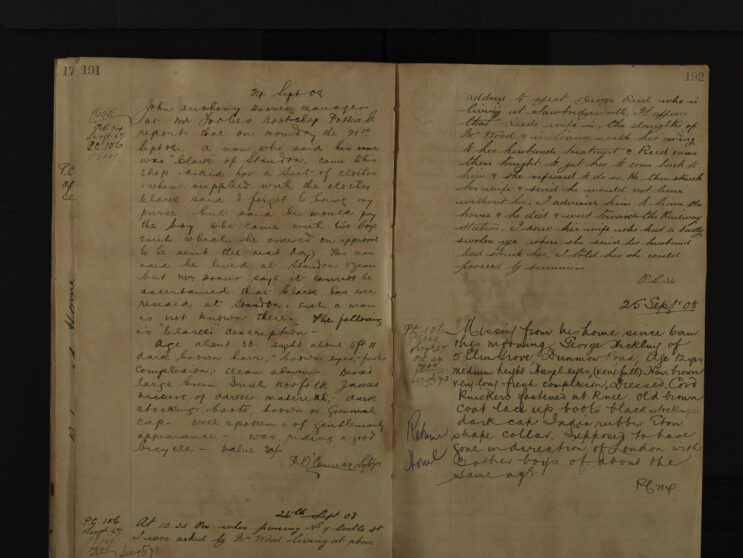 17 191
24 Sept 08
John Anthony Horner manager
at Mr Forbes Bootshop Potter St
reports that on monday the 21st
Sept 08. A man who said his name
was "Clark" of Standon, came to his
shop & asked for a suit of clothes
& when supplied with the clothes
Clark said I forgot to bring my
purse but said he would pay
the boy who came with two boys
suits which he ordered on approval
to be sent the next day. This man
said he lived at Standon 5 years
but Mr Horner says it cannot be
ascertained that Clark has ever
resided at Standon & such a man
is not known there. The following
is "Clark's" description -
Age about 30 - height about 5ft 11
dark brown hair, - brown eyes, - fresh
Complexion; clean shaven - Dressed
large Green Norfolk Jacket
knickers of darker material, - dark
stockings & boots, brown or Greenish
Cap - well spoken & of gentlemanly
appearance - was riding a good
bicycle - value
P.C. 106
Sergt 67
P.C. 34
P.C. 106
24th Sept 08
At 10.35 Pm when passing No 9 Castle St
I was asked by Mr Wood living at above
P.C. 106
Sergt 67
Sergt 573
192
address to eject George Reed who is
living at Sawbridgeworth, It appears
that Reeds wife is the daughter of
Mr Wood & is living with her owing
to her husbands treatment & Reed came
there tonight to get her to come back to
him & she refused to do so. He then struck
his wife & said he would not leave
without her, I advised him to leave the
house & he did & went towards the Railway
Station. I saw his wife who had a badly
swolen eye where she said her husband
had struck her, I told her she could
proceed by summons
P.C. 34
25 Sept 08
Missing from his home since 6 am
this morning, George Inckley of
5 Elm Grove, Dunmow Road, Age 12 yrs
medium height Hazel eyes, (very full) Hair brown
& very long fresh complexion, Dressed, Cord
Knickers fastened at knee old brown
coat lace up boots black stockings
dark cap India rubber Eton
shape collar. Supposed to have
gone in direction of London with
another boys of about the
same age.
P.C. 106
Sergt 67
P.C. 34
Sergt 573
Return
Home